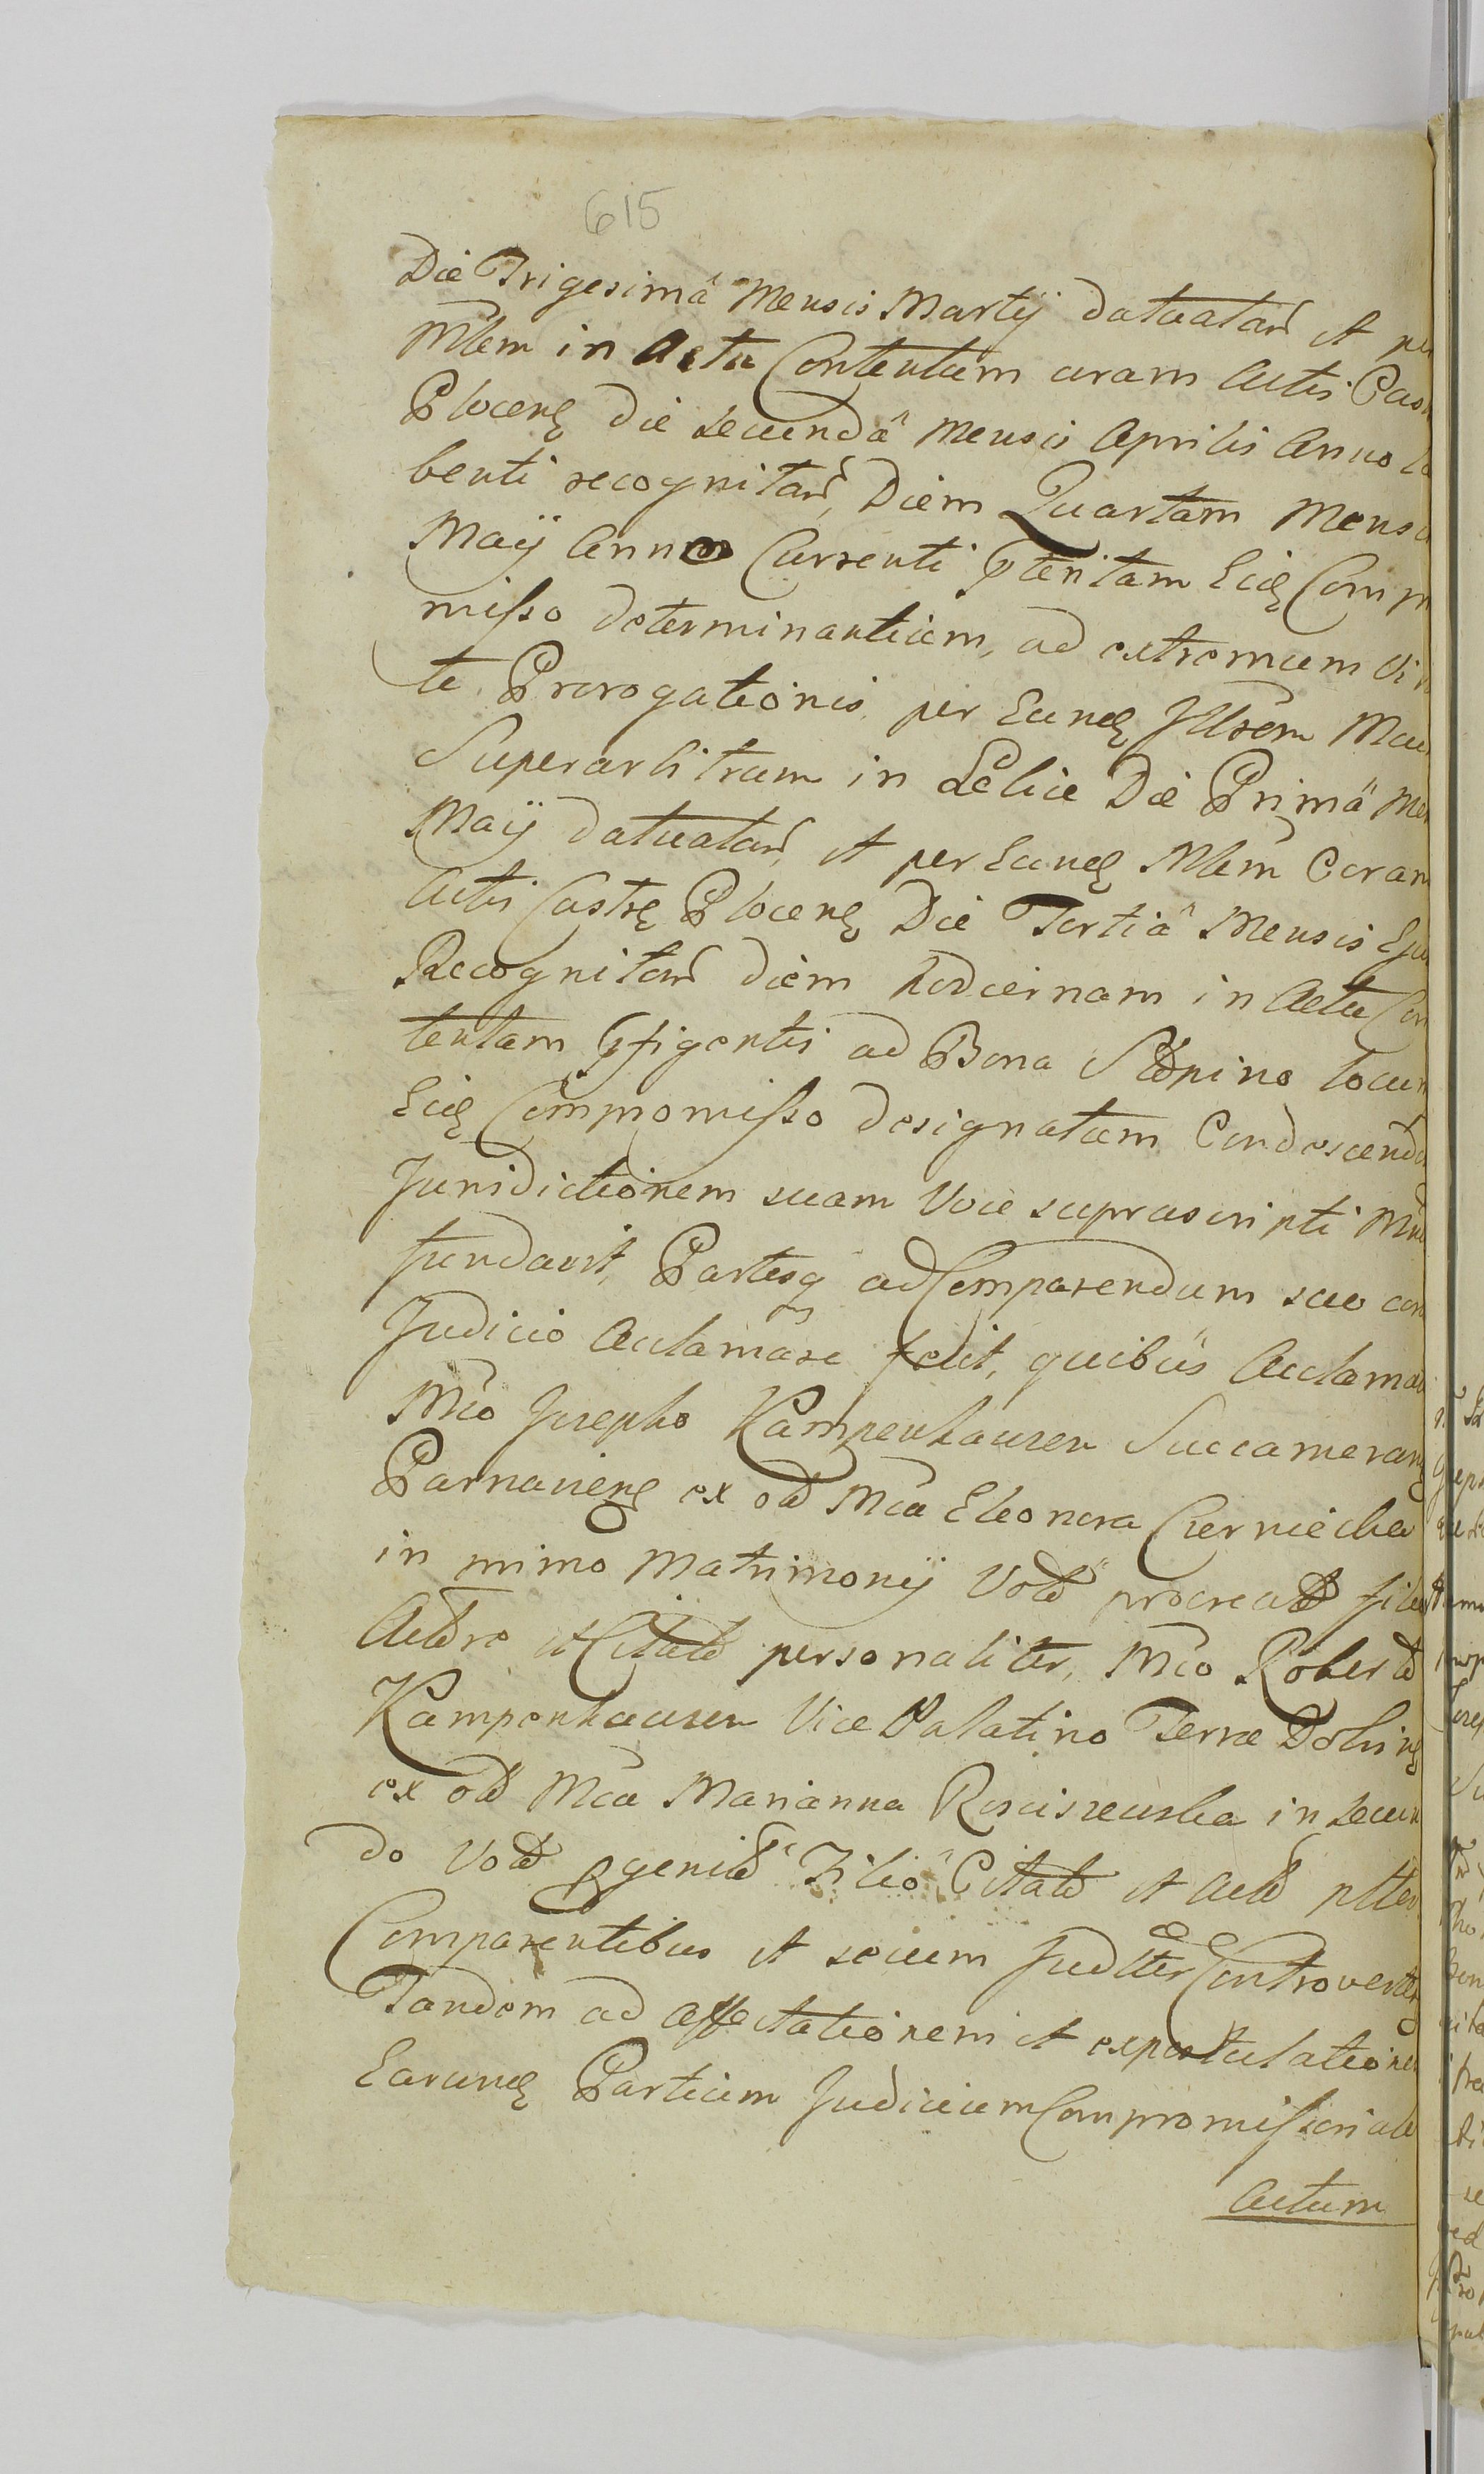 615
Die Trigesimâ Mensis Martij datuatam et per
Mlem in Actu Contentum coram Actis Cas
Plocens die Secundâ Mensis Aprilis Anno la
benti recognitam, Diem Quartam Mensis
Maij Anno Currenti pteritam Eid Comp
misso determinantium, ad extremum vi
te Prorogationis per Eund Illrem
Superarbitrum in Lelice Die Primâ Men
Maij datuatam, et per Eund Mlem Coram
Actis Castr Plocens Die Tertiâ Mensis Ejus
Recognitam diem hodiernam in Actu Con
tentam pfigentis ad Bona Stpino locum
Eid Compromisso designatum Condescend
Jurisdictionem suam Voce suprascripti Min
fundavit, Partesq ad Comparendum suo cor
Judicio Acclamare fecit, quibus Acclama
Mco Josepho Kampenhausen Succamerar
Parnaviens ex od Mca Eleonora Czerniecka
in primo Matrimonij Voto procreato filio
Actore et Citato personaliter, Mco Roberto
Kampenhausen Vice Palatino Terræ Dobrin
ex od Mca Marianna Rosciszewska in Secun
do Voto pgenito Filio Citato et Acto plter
Comparentibus et secum Judltter Controverten
Tandem ad affectationem et expostulatione
Earund Partium Judicium Compromissoriale
Actum